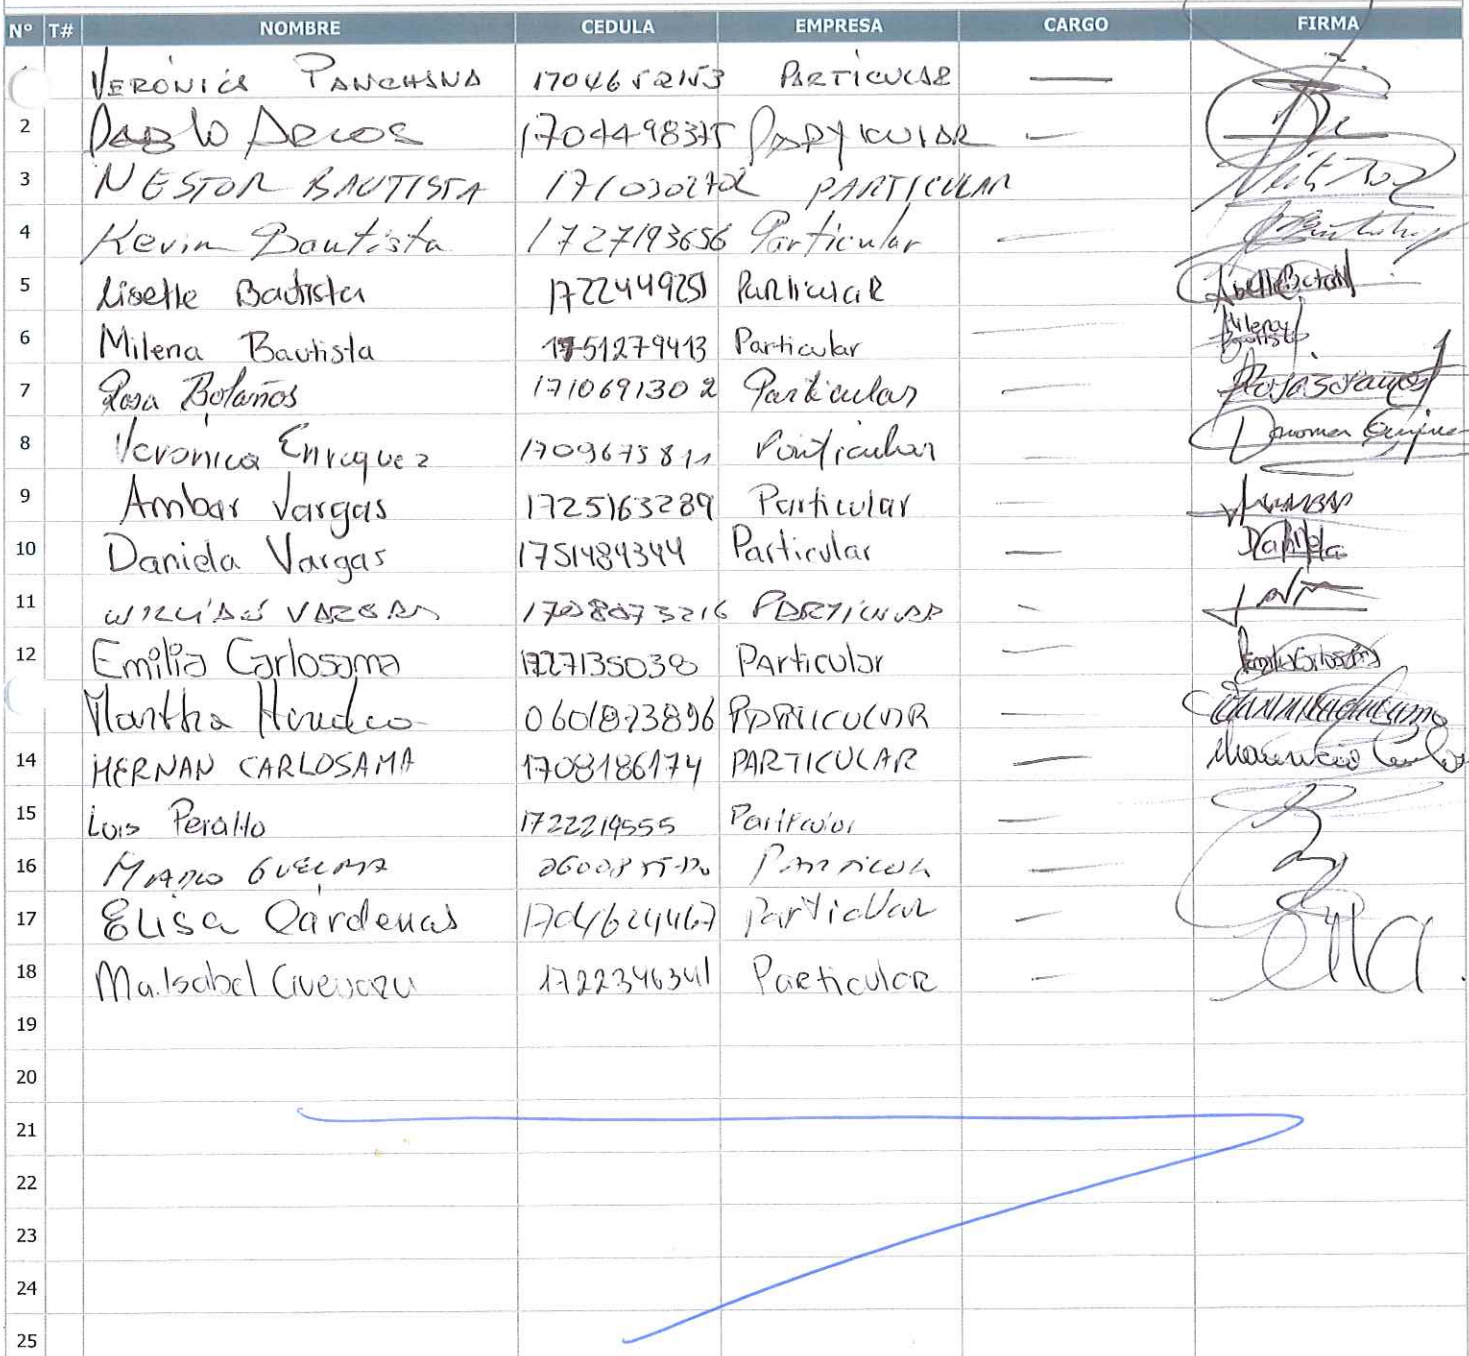 Nº T# NOMBRE CEDULA EMPRESA CARGO FIRMA
VERÓNICA PANCHANA 1704652153 PARTICULAR —
2 Pablo Arcos 1704498375 PARTICULAR —
3 NESTOR BAUTISTA 1710302702 PARTICULAR
4 Kevin Bautista 1727193656 Particular —
5 Lisette Bautista 1722449251 Particular
6 Milena Bautista 1751279413 Particular — Milena Bautista
7 Rosa Bolaños 1710691302 Particular — Rosa Bolaños
8 Veronica Enriquez 1709675811 Particular —
9 Ambar Vargas 1725163289 Particular — AMBAR
10 Daniela Vargas 1751484344 Particular — Daniela
11 VARGAS 1708073216 PARTICULAR —
12 Emilia Carlosama 1727135038 PArticular — Emilia Carlosama
Martha 0601873896 PARTICULAR —
14 HERNAN CARLOSAMA 1708186174 PARTICULAR —
15 Luis Peralto 1722219555 Particular —
16 —
17 Elisa Cárdenas 1704624467 Particular —
18 Ma. Isabel Guevara 1722346341 Particular —
19
20
21
22
23
24
25